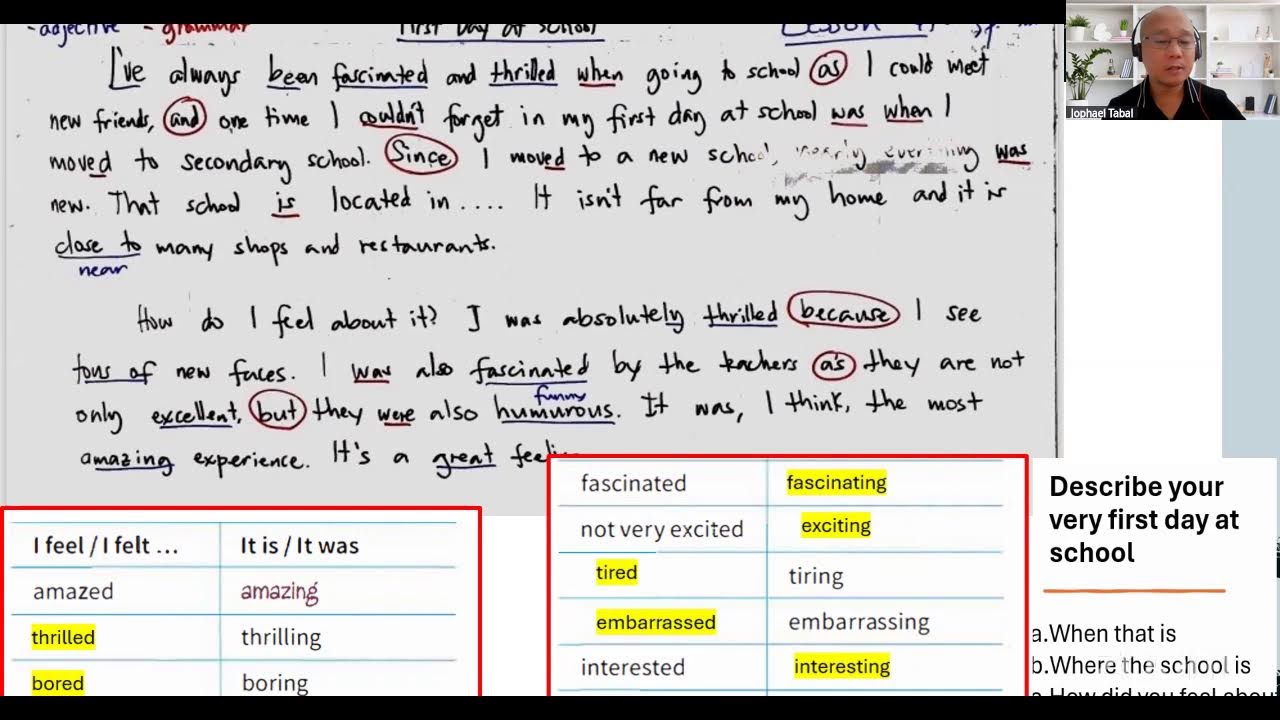 -adjective -grammar First Day at school Lesson
I've always been fascinated and thrilled when going to school as I could meet
new friends, and one time I couldn't forget in my first day at school was when I
moved to secondary school. Since I moved to a new school, nearly everything was
new. That school is located in .... It isn't far from my home and it is
close to many shops and restaurants.
near
How do I feel about it? I was absolutely thrilled because I see
tons of new faces. I was also fascinated by the teachers as they are not
funny
only excellent, but they were also humurous. It was, I think, the most
amazing experience. It's a great
Jophael Tabal
I feel / I felt ... It is / It was
amazed amazing
thrilled thrilling
bored boring
fascinated fascinating
not very excited exciting
tired tiring
embarrassed embarrassing
interested interesting
Describe your
very first day at
school
a.When that is
b.Where the school is
How did you feel